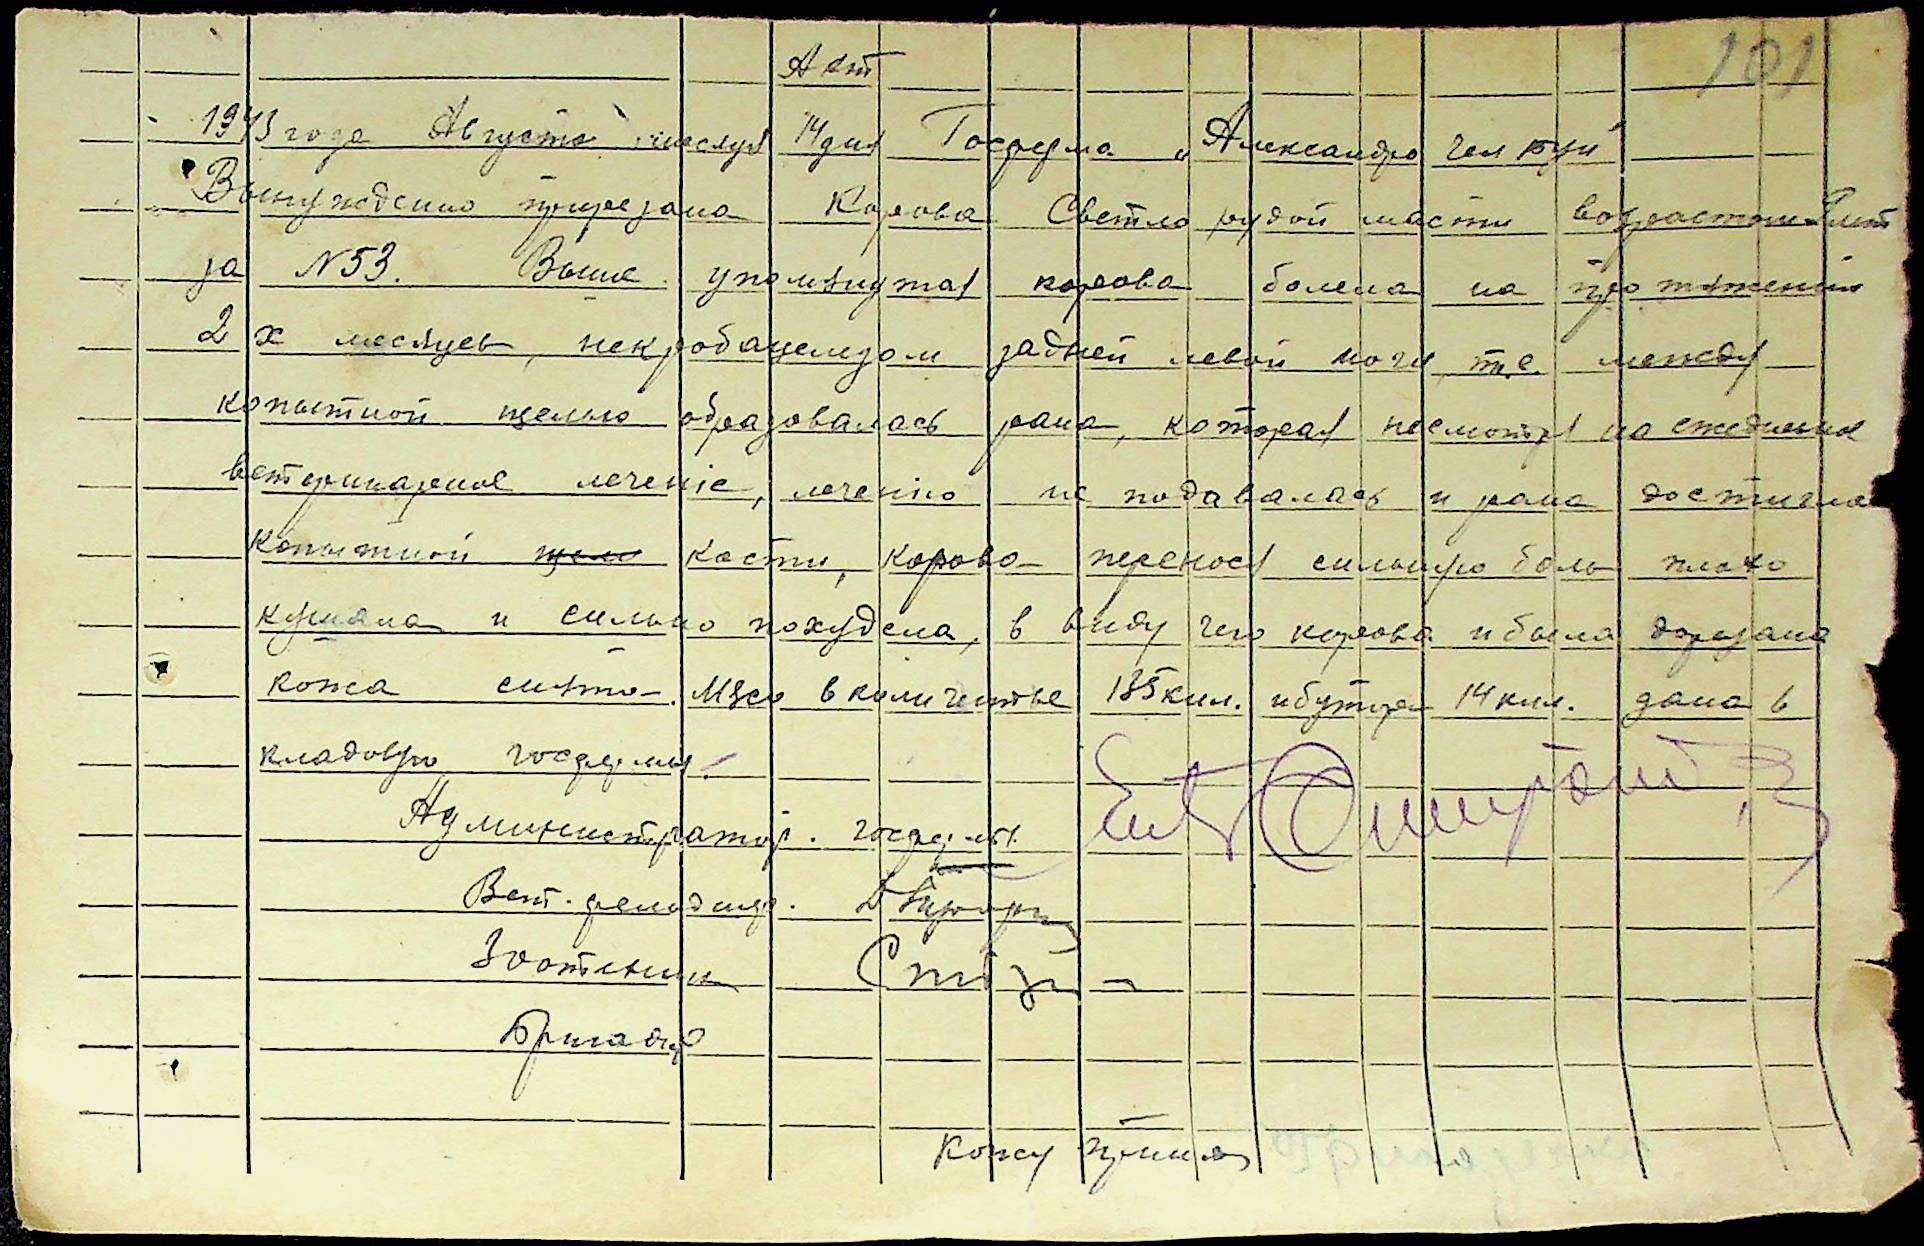 101
Акт
1943 года Августа месяця 14 дня Госферма „Александро
Вынуждено прирезана Корова Светло рудой масти возрастом лет
за N 53. Выше упомянутая корова болела на протяжении
2 х месяцев, некробацелезом задней левой ноги, т.е. между
копытной щелью образовалась рана, которая несмотря на ежедневное
ветеринарное леченіе, леченію не подавалась и рана достигла
копытной щело кости, корова перенося сильную боль плохо
кушала и сильно похудела, в виду чего корова и была дорезана
кожа снята. Мясо в количестве 135 кил. и бутора 14 кил. дана в
кладовую госфермы.
Администратор. госфермы.
Вет. фельдшер.
Зоотехник
Бригадир
Кожу принял